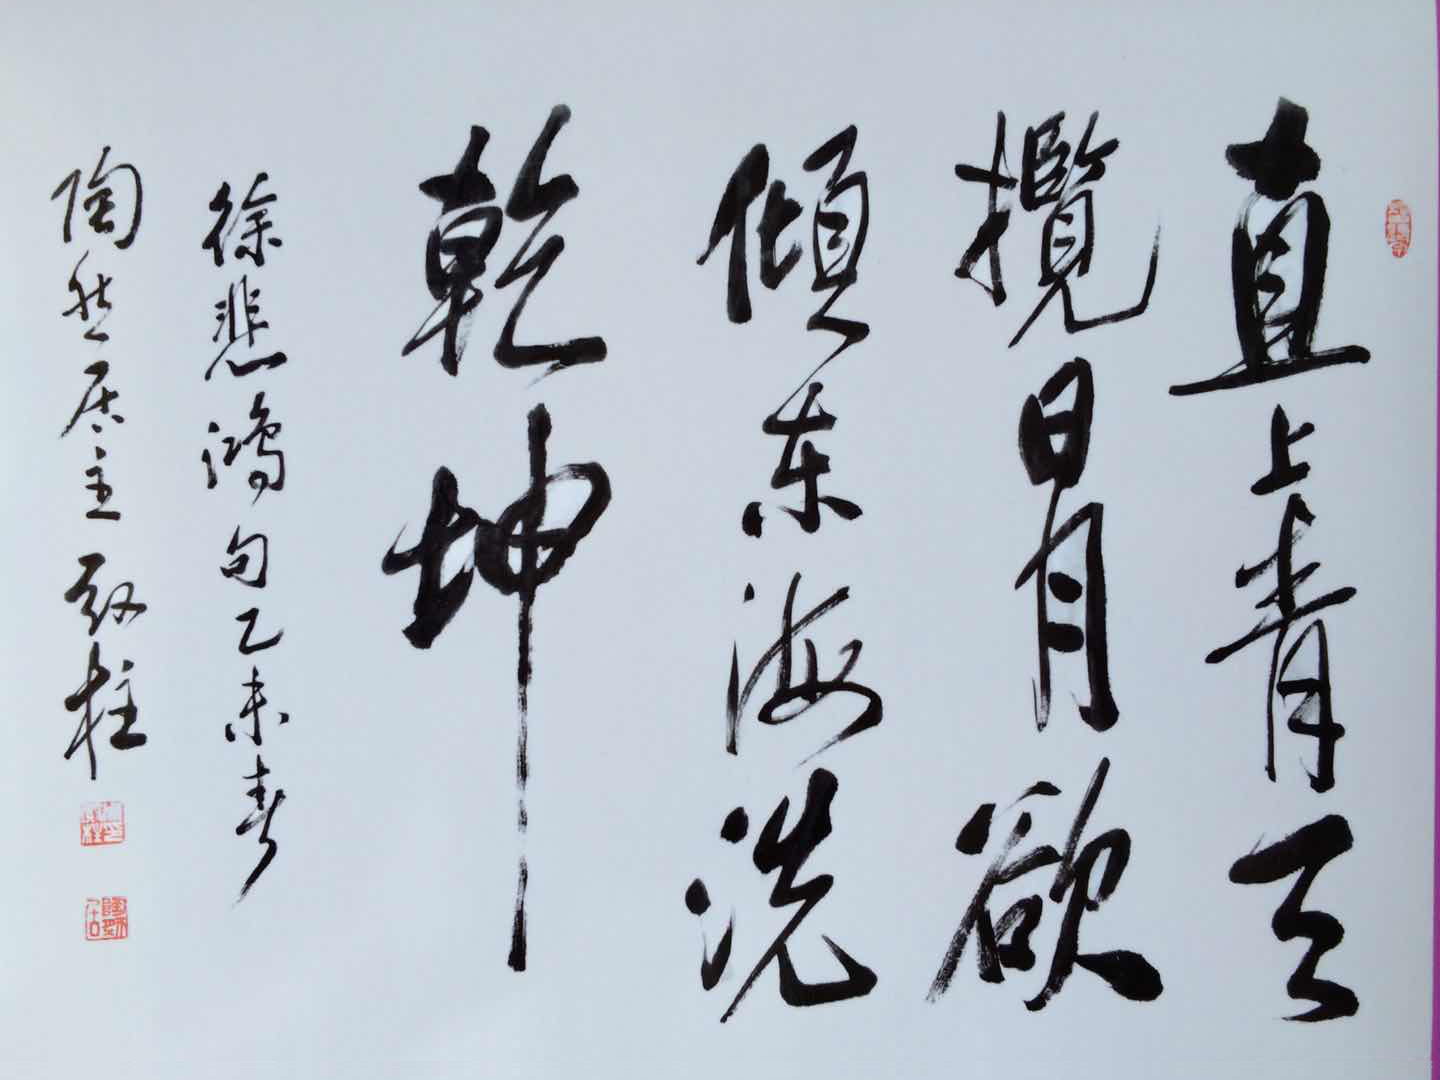 直上青天
攬日月欲
傾东海洗
乾坤
徐悲鴻句乙未春
陶然居主 柱